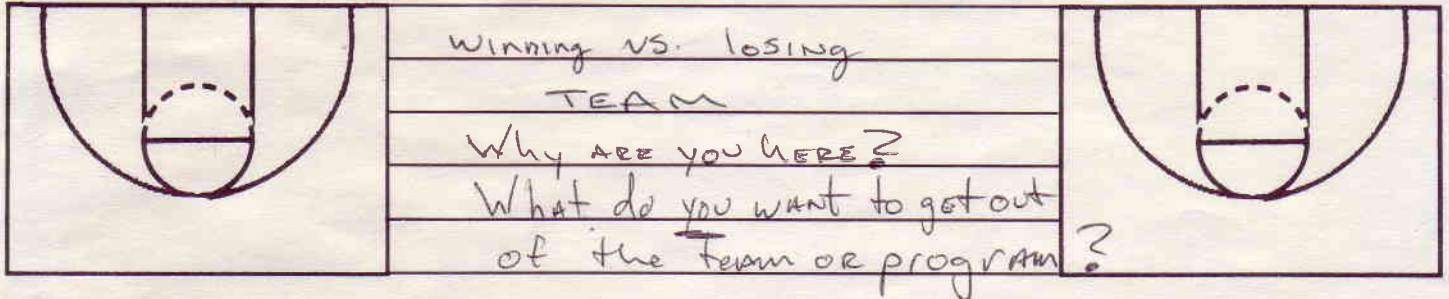 Winning vs. losing
TEAM
Why ARE you HERE?
What do you WANT to get out
of the Team OR program?